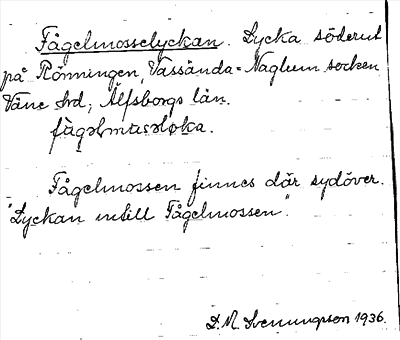 Fågelmosselyckan. Lycka söderut
på Rönningen, Vassända-Naglum socken
Väne hd, Älfsborgs län.
Fågelmossen finnes där sydöver.
"Lyckan intill Fågelmossen".
D. N. Svenungsson 1936.